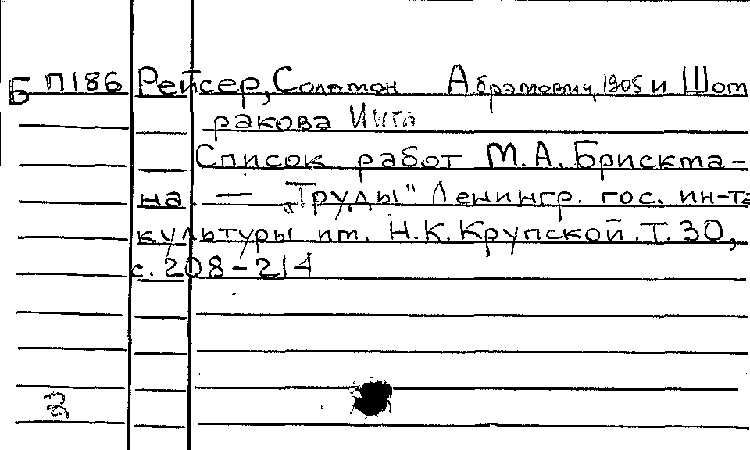 Б П186 Рейсер, Соломон Абрамович, 1905 и Шот
ракова
Список работ М.А. Брискма-
на. — „Труды" Ленингр. гос. ин-та
культуры им. Н.К. Крупской. Т. 30,
с. 208-214